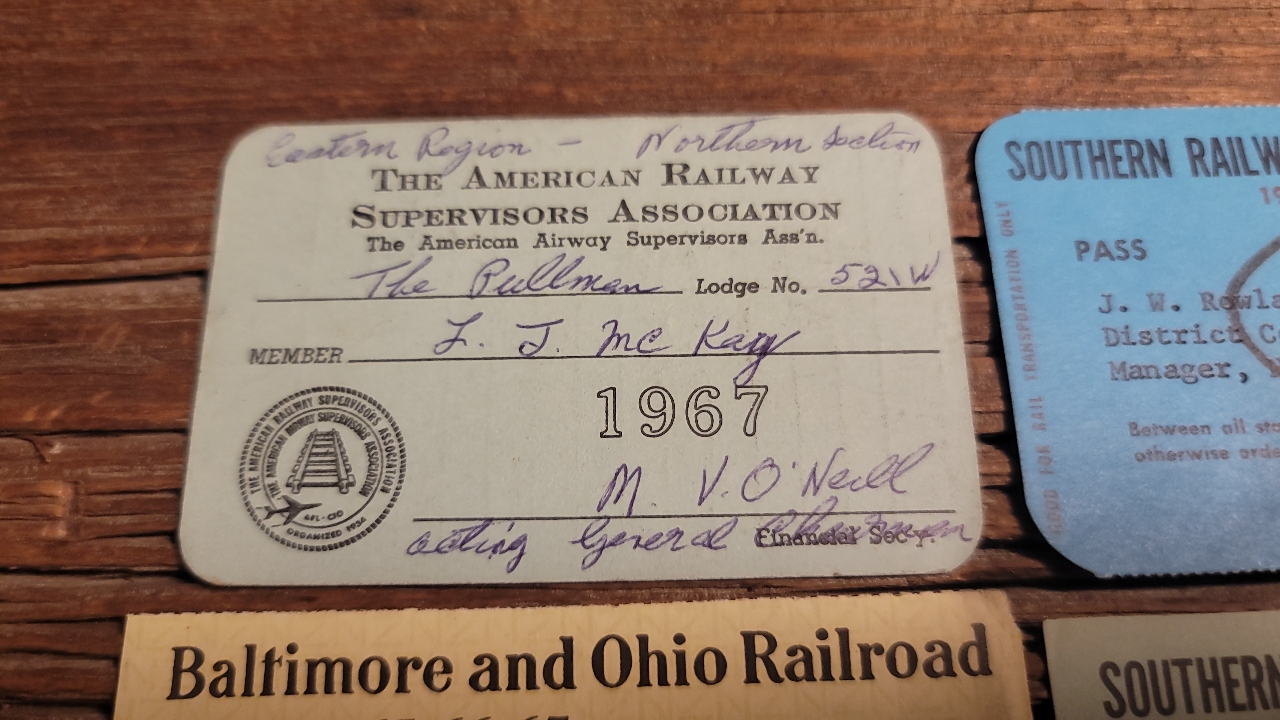 Eastern Region - Northern Section
THE AMERICAN RAILWAY
SUPERVISORS ASSOCIATION
The American Airway Supervisors Ass'n.
The Pullman Lodge No. 521W
MEMBER L. J. Mc Kay
1967
M. V. O'Neill
acting General Chairman
Financial Sec'y.
THE AMERICAN RAILWAY SUPERVISORS ASSOCIATION
THE AMERICAN AIRWAY SUPERVISORS ASSOCIATION
AFL-CIO
ORGANIZED 1934
SOUTHERN RAILW
19
PASS
J. W. Rowla
District C
Manager,
Between all sta
otherwise orde
FOR RAIL TRANSPORTATION ONLY
Baltimore and Ohio Railroad
SOUTHERN